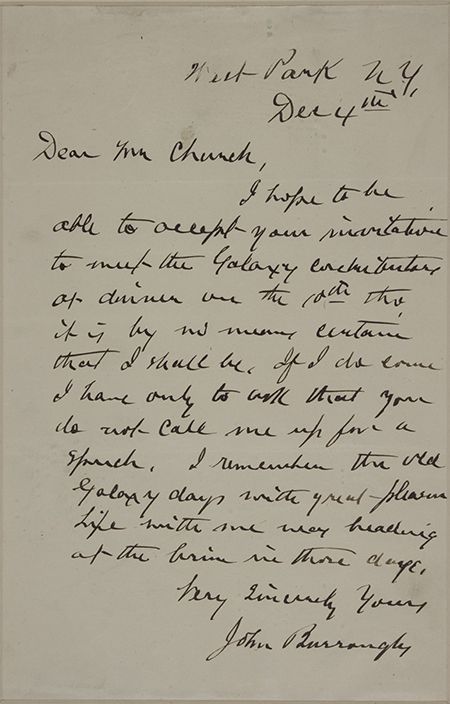 West Park N.Y.
Dec 4th
Dear Mr Church,
I hope to be
able to accept your invitation
to meet the Galaxy contributors
at dinner on the th tho,
it is by no means certain
that I shall be. If I do come
I have only to ask that you
do not call me up for a
speech. I remember the old
Galaxy days with great pleasure
Life with me was beading
at the brim in those days.
Very Sincerely Yours
John Burroughs